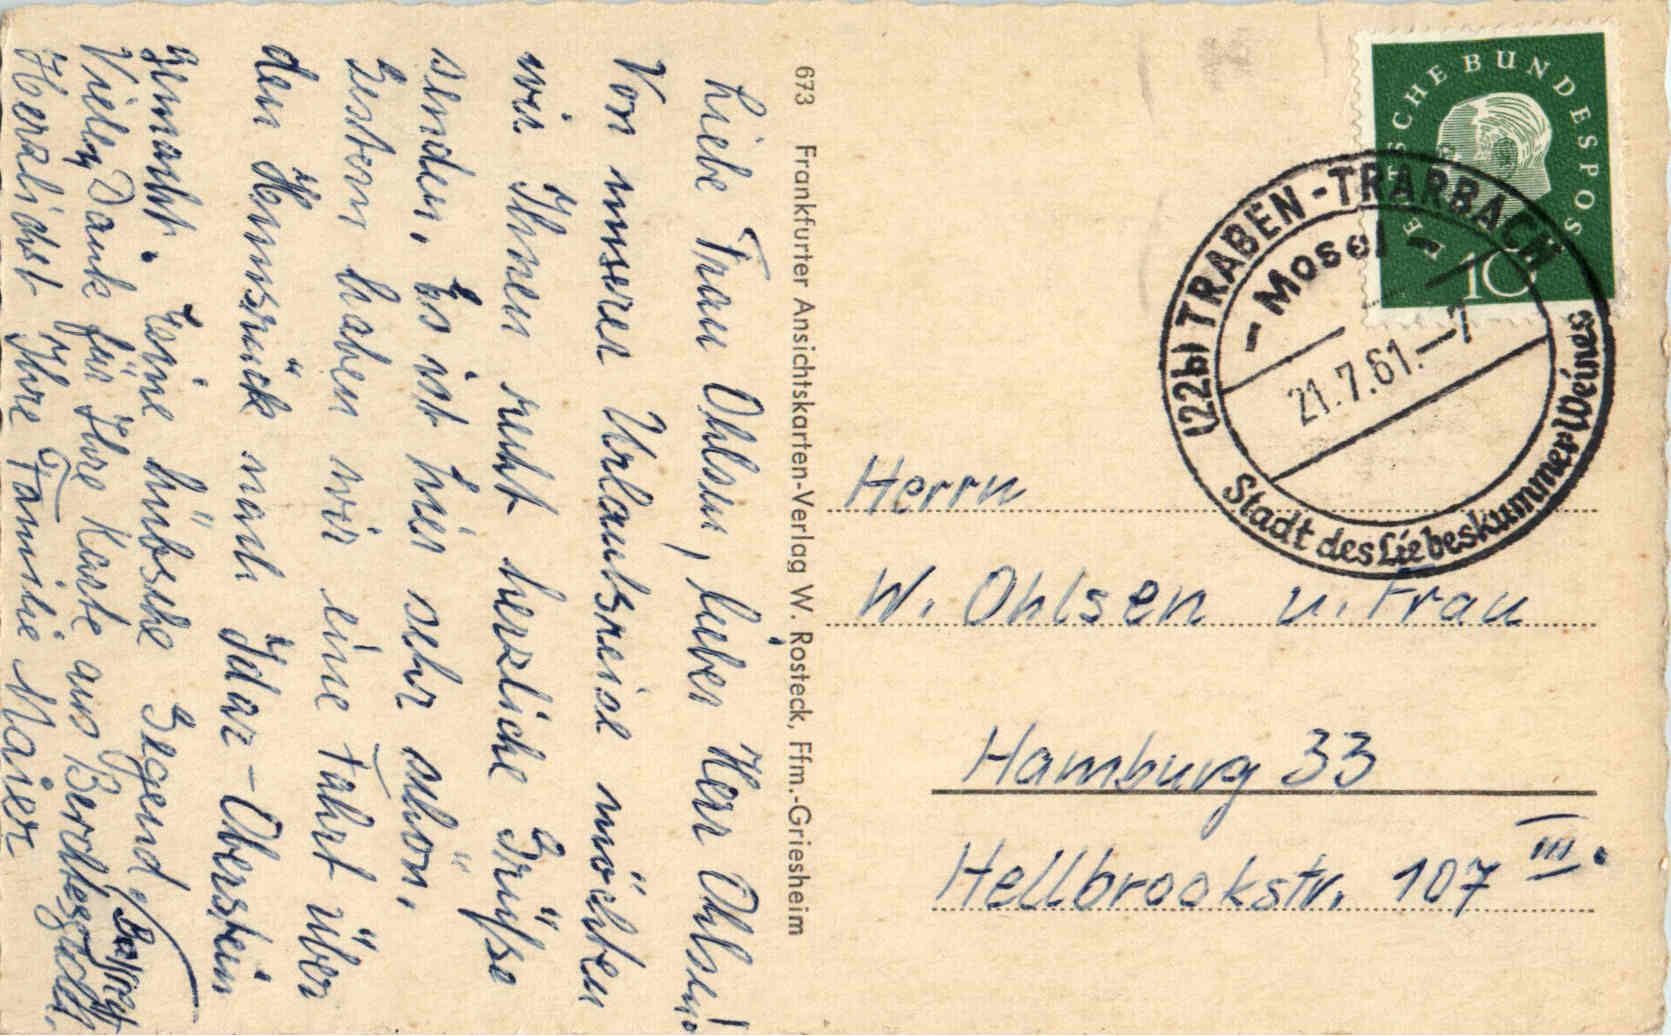 Liebe Frau Ohlsen, lieber Herr Ohlsen!
Von unserer Urlaubsreise möchten
wir Ihnen recht herzliche Grüße
senden. Es ist hier sehr schön.
Gestern haben wir eine Fahrt über
den Hunsrück nach Idar-Oberstein
gemacht. Eine hübsche Gegend.
Vielen Dank für Ihre Karte aus Berchtesgaden.
Herzlichst Ihre Familie Maier
673 Frankfurter Ansichtskarten-Verlag W. Rosteck, Ffm.-Griesheim
DEUTSCHE BUNDESPOST
10
(22b) TRABEN-TRARBACH
- Mosel -
21.7.61.-7
Stadt des Liebeskummer Weines
Herrn
W. Ohlsen u. Frau
Hamburg 33
Hellbrookstr. 107 III.